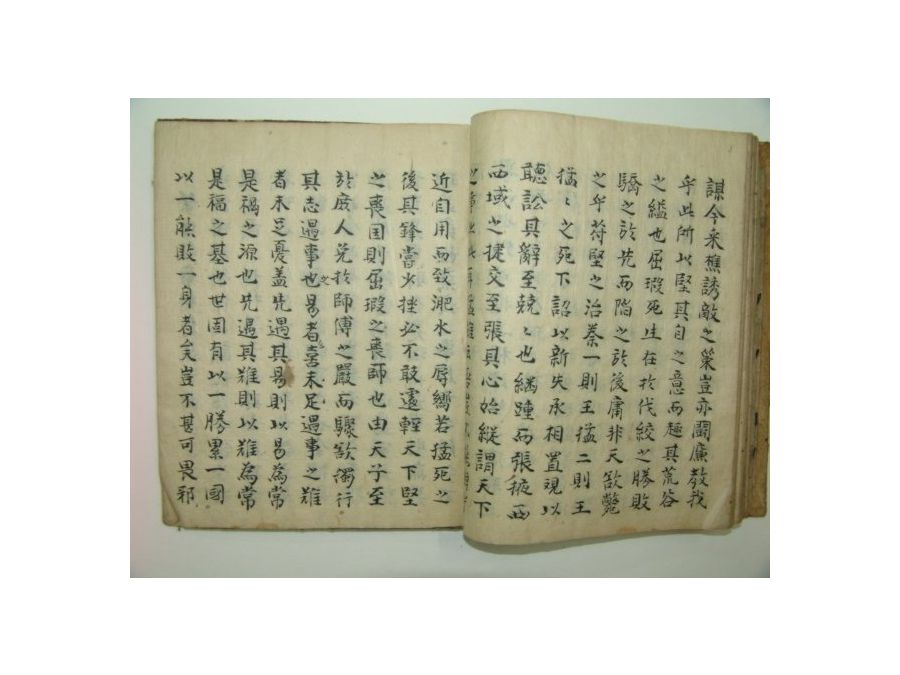 謀今采樵誘敵之策豈亦鬪廉教我
乎此所以堅其自之意而趣其荒谷
之縊也屈瑕死生在於伐絞之勝敗
驕之於先而陷之於後庸非天欲斃
之乎苻堅之治秦一則王猛二則王
猛〻之死下詔以新失承相置視以
聽訟其辭至兢〻也繼踵而張掖西
西域之捷交至張其心始縱謂天下
近自用而致淝水之辱嚮若猛死之
後其鋒嘗少挫必不敢遽輕天下堅
之喪国則屈瑕之喪師也由天子至
於庶人兌於師傅之嚴而驟欲獨行
其志遇事也之易者喜未足遇事之難
者未足憂盖先遇其易則以易為常
是禍之源也先遇其難則以難為常
是福之基也世固有以一勝累一國
以一能敗一身者矣豈不甚可畏邪